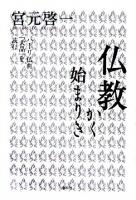 宮元啓一
仏教
かく
始まりき
パーリ仏典
『大品』を
読む